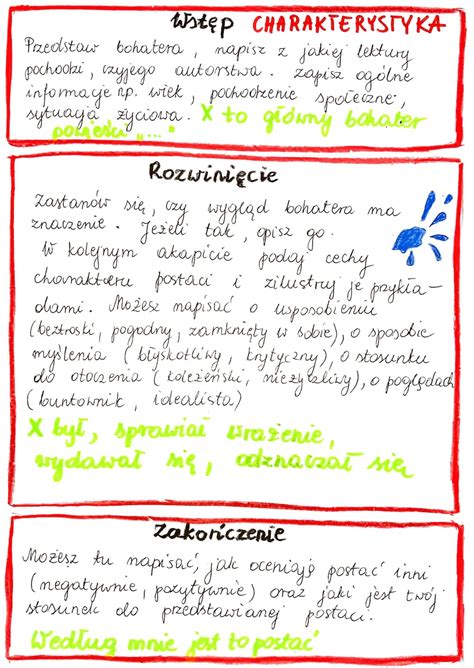 Wstęp CHARAKTERYSTYKA
Przedstaw bohatera, napisz z jakiej lektury
pochodzi, czyjego autorstwa. Zapisz ogólne
informacje np. wiek, pochodzenie społeczne,
sytuacja życiowa. X to główny bohater
powieści „..."
Rozwinięcie
Zastanów się, czy wygląd bohatera ma
znaczenie. Jeżeli tak, opisz go.
W kolejnym akapicie podaj cechy
charakteru postaci i zilustruj je przykła-
dami. Możesz napisać o usposobieniu
(beztroski, pogodny, zamknięty w sobie), o sposobie
myślenia (błyskotliwy, krytyczny), o stosunku
do otoczenia (koleżeński, nieżyczliwy), o poglądach
(buntownik, idealista)
X był, sprawiał wrażenie,
wydawał się, odznaczał się
Zakończenie
Możesz tu napisać, jak oceniają postać inni
(negatywnie, pozytywnie) oraz jaki jest twój
stosunek do przedstawianej postaci.
Według mnie jest to postać